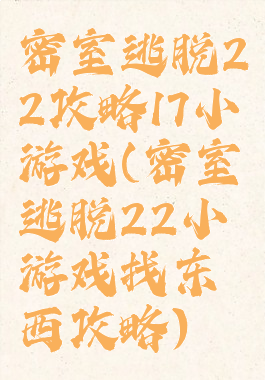 密室逃脱2
2攻略17小
游戏(密室
逃脱22小
游戏找东
西攻略)